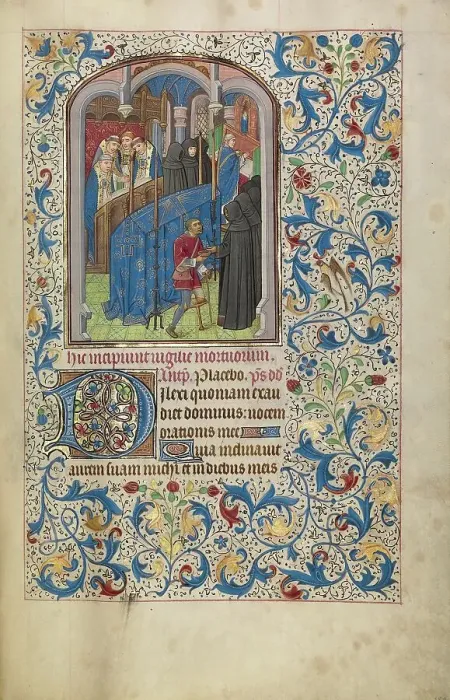 Hic incipiunt vigilie mortuorum.
Antip. Placebo. ps dd
Dilexi quoniam exau
diet dominus: vocem
orationis mee
Quia inclinavit
aurem suam michi et in diebus meis